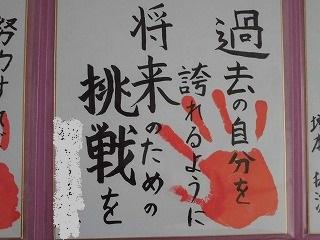 過去の自分を
誇れるように
将来のための
挑戦を